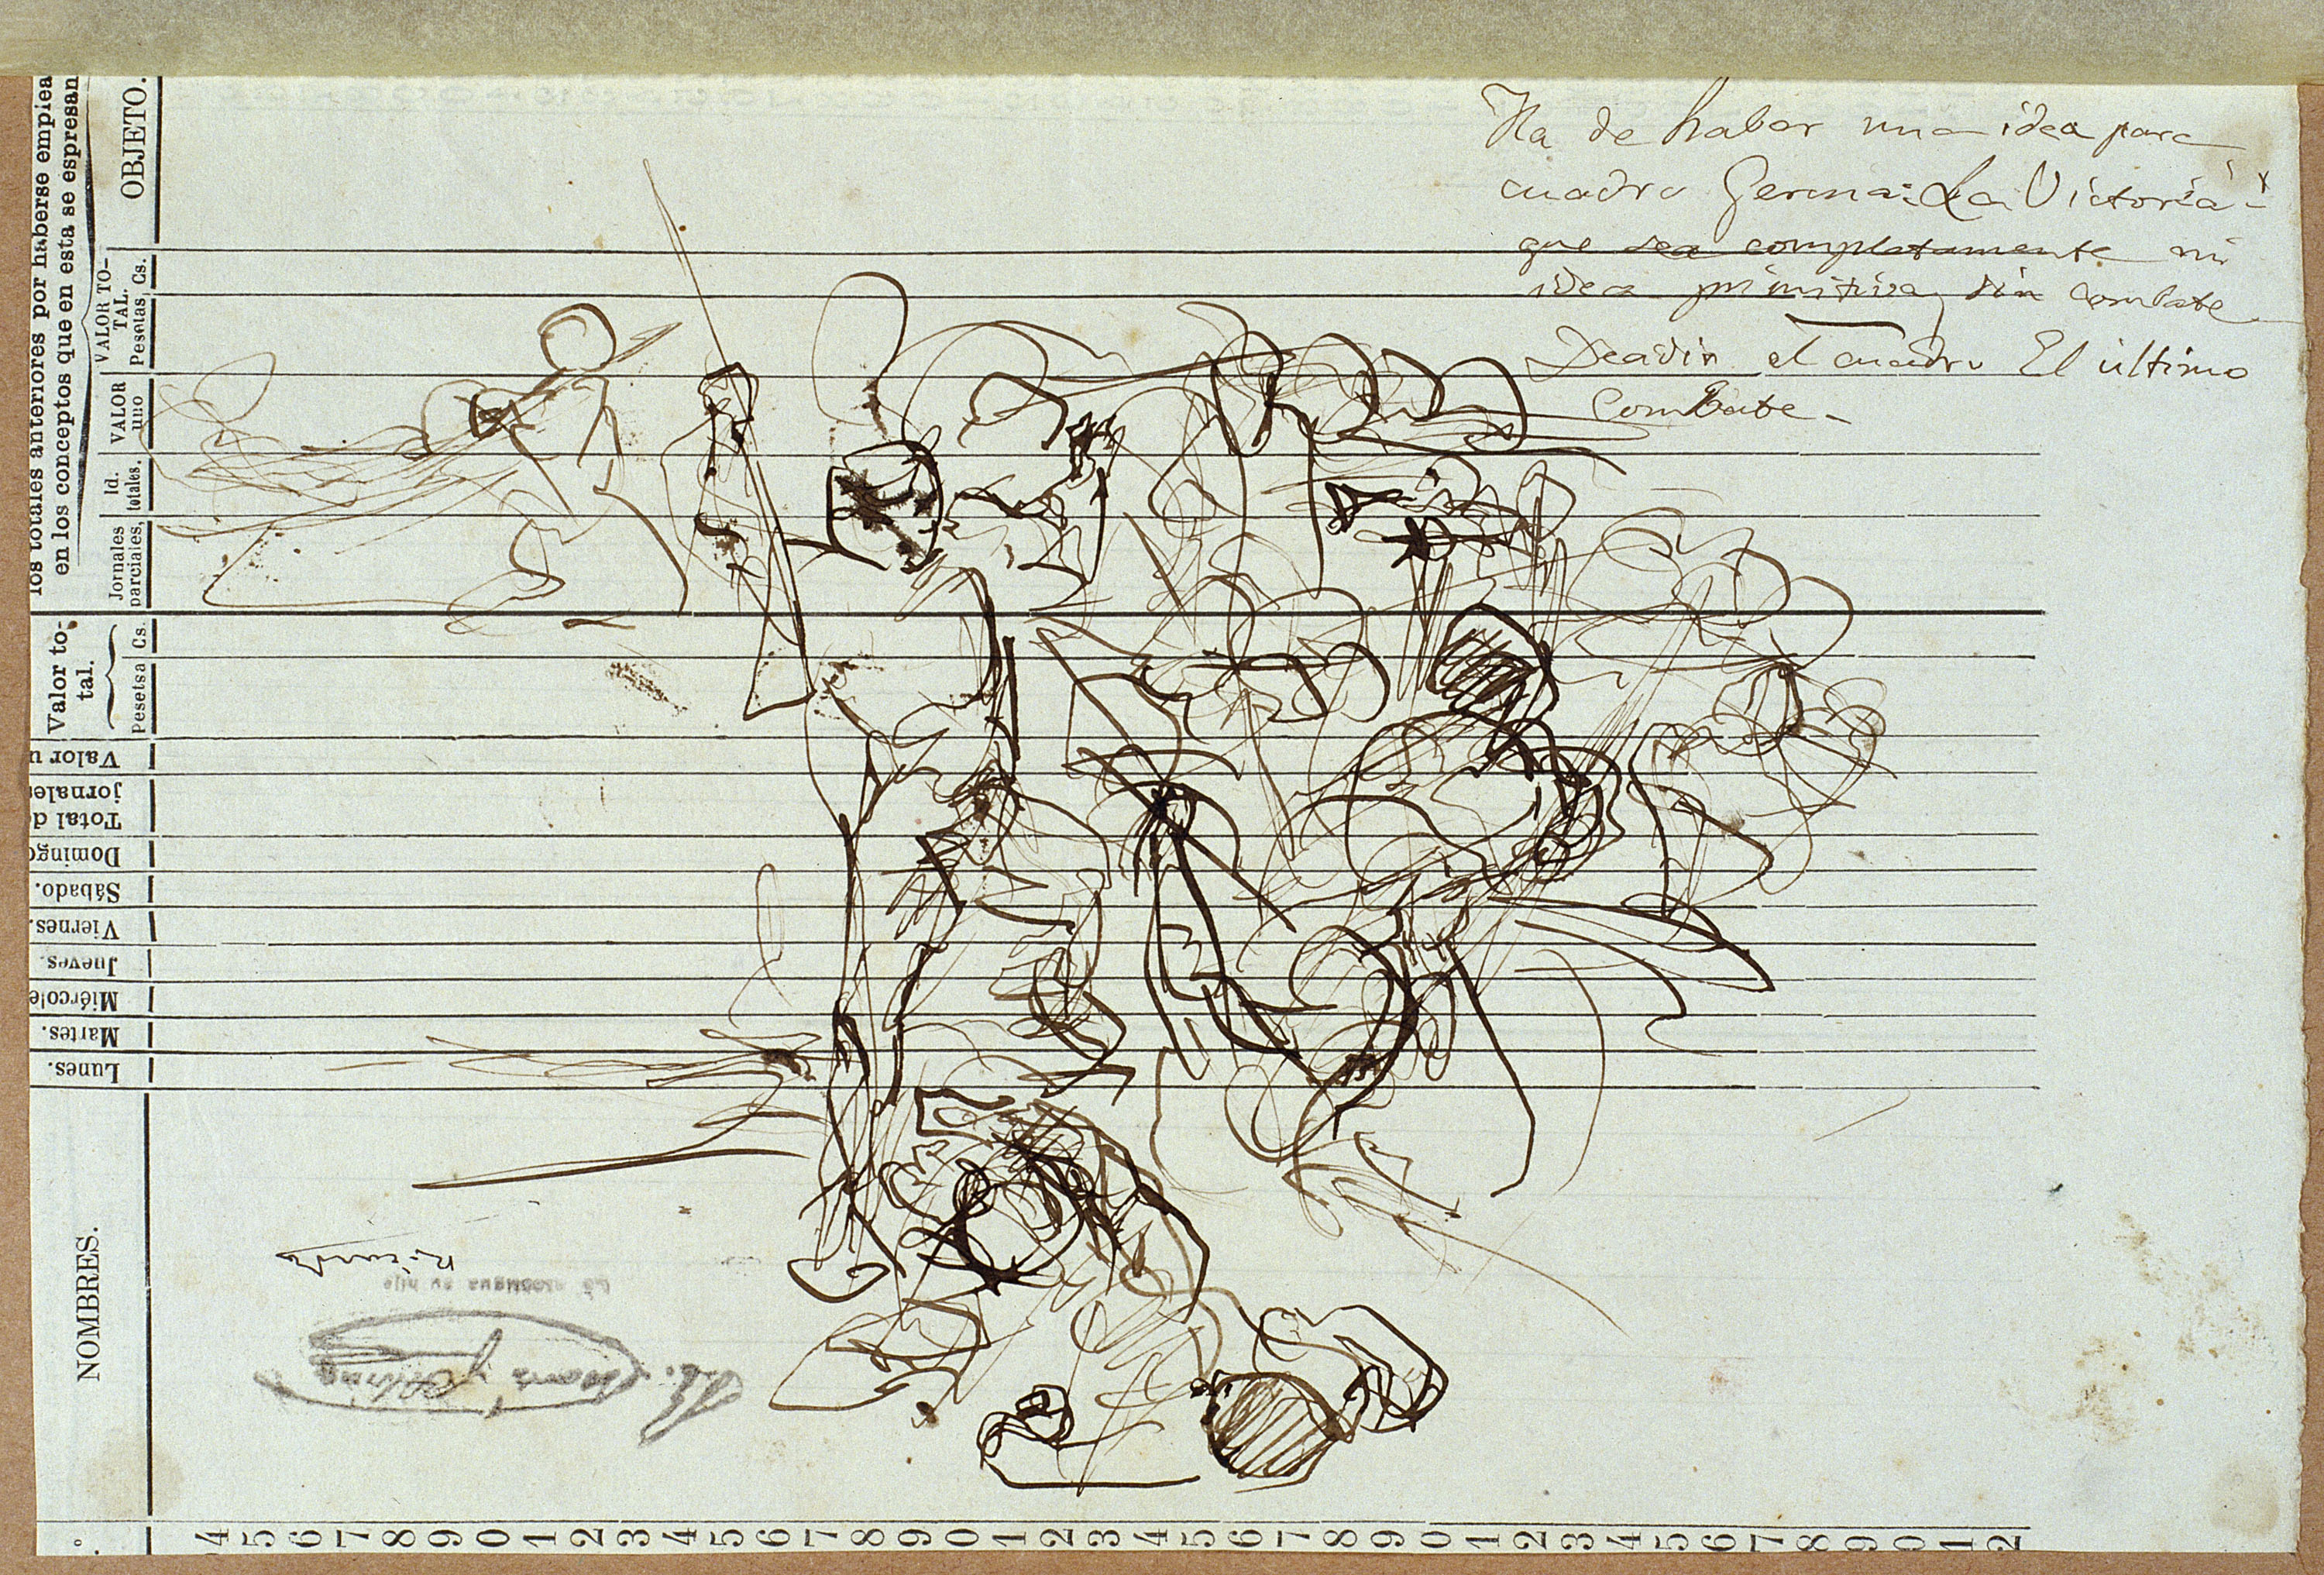 Ha de haber una idea para
cuadro Germa: La Victoria
que sea completamente mi
idea primitiva sin combate
el cuadro El ultimo
Combate
los totales anteriores por haberse emplea
en los conceptos que en esta se espresan
OBJETO.
VALOR TO-
TAL.
Pesetas Cs.
VALOR
uno
Id.
totales.
Jornales
parciales,
Valor to-
tal.
Pesetsa Cs.
Valor u
Total de
jornales
Domingo
Sábado.
Viernes.
Jueves.
Miércole
Martes.
Lunes.
NOMBRES.
Ricardo
su hijo
4 5 6 7 8 9 0 1 2 3 4 5 6 7 8 9 0 1 2 3 4 5 6 7 8 9 0 1 2 3 4 5 6 7 8 9 0 1 2